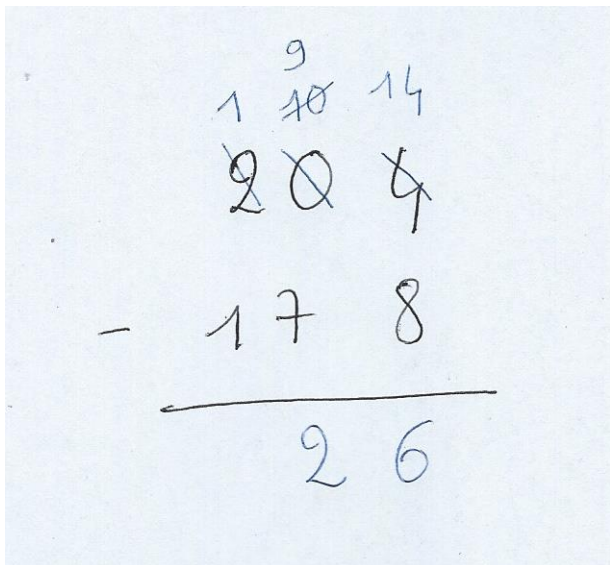 9
1 10 14
2 0 4
- 1 7 8
2 6